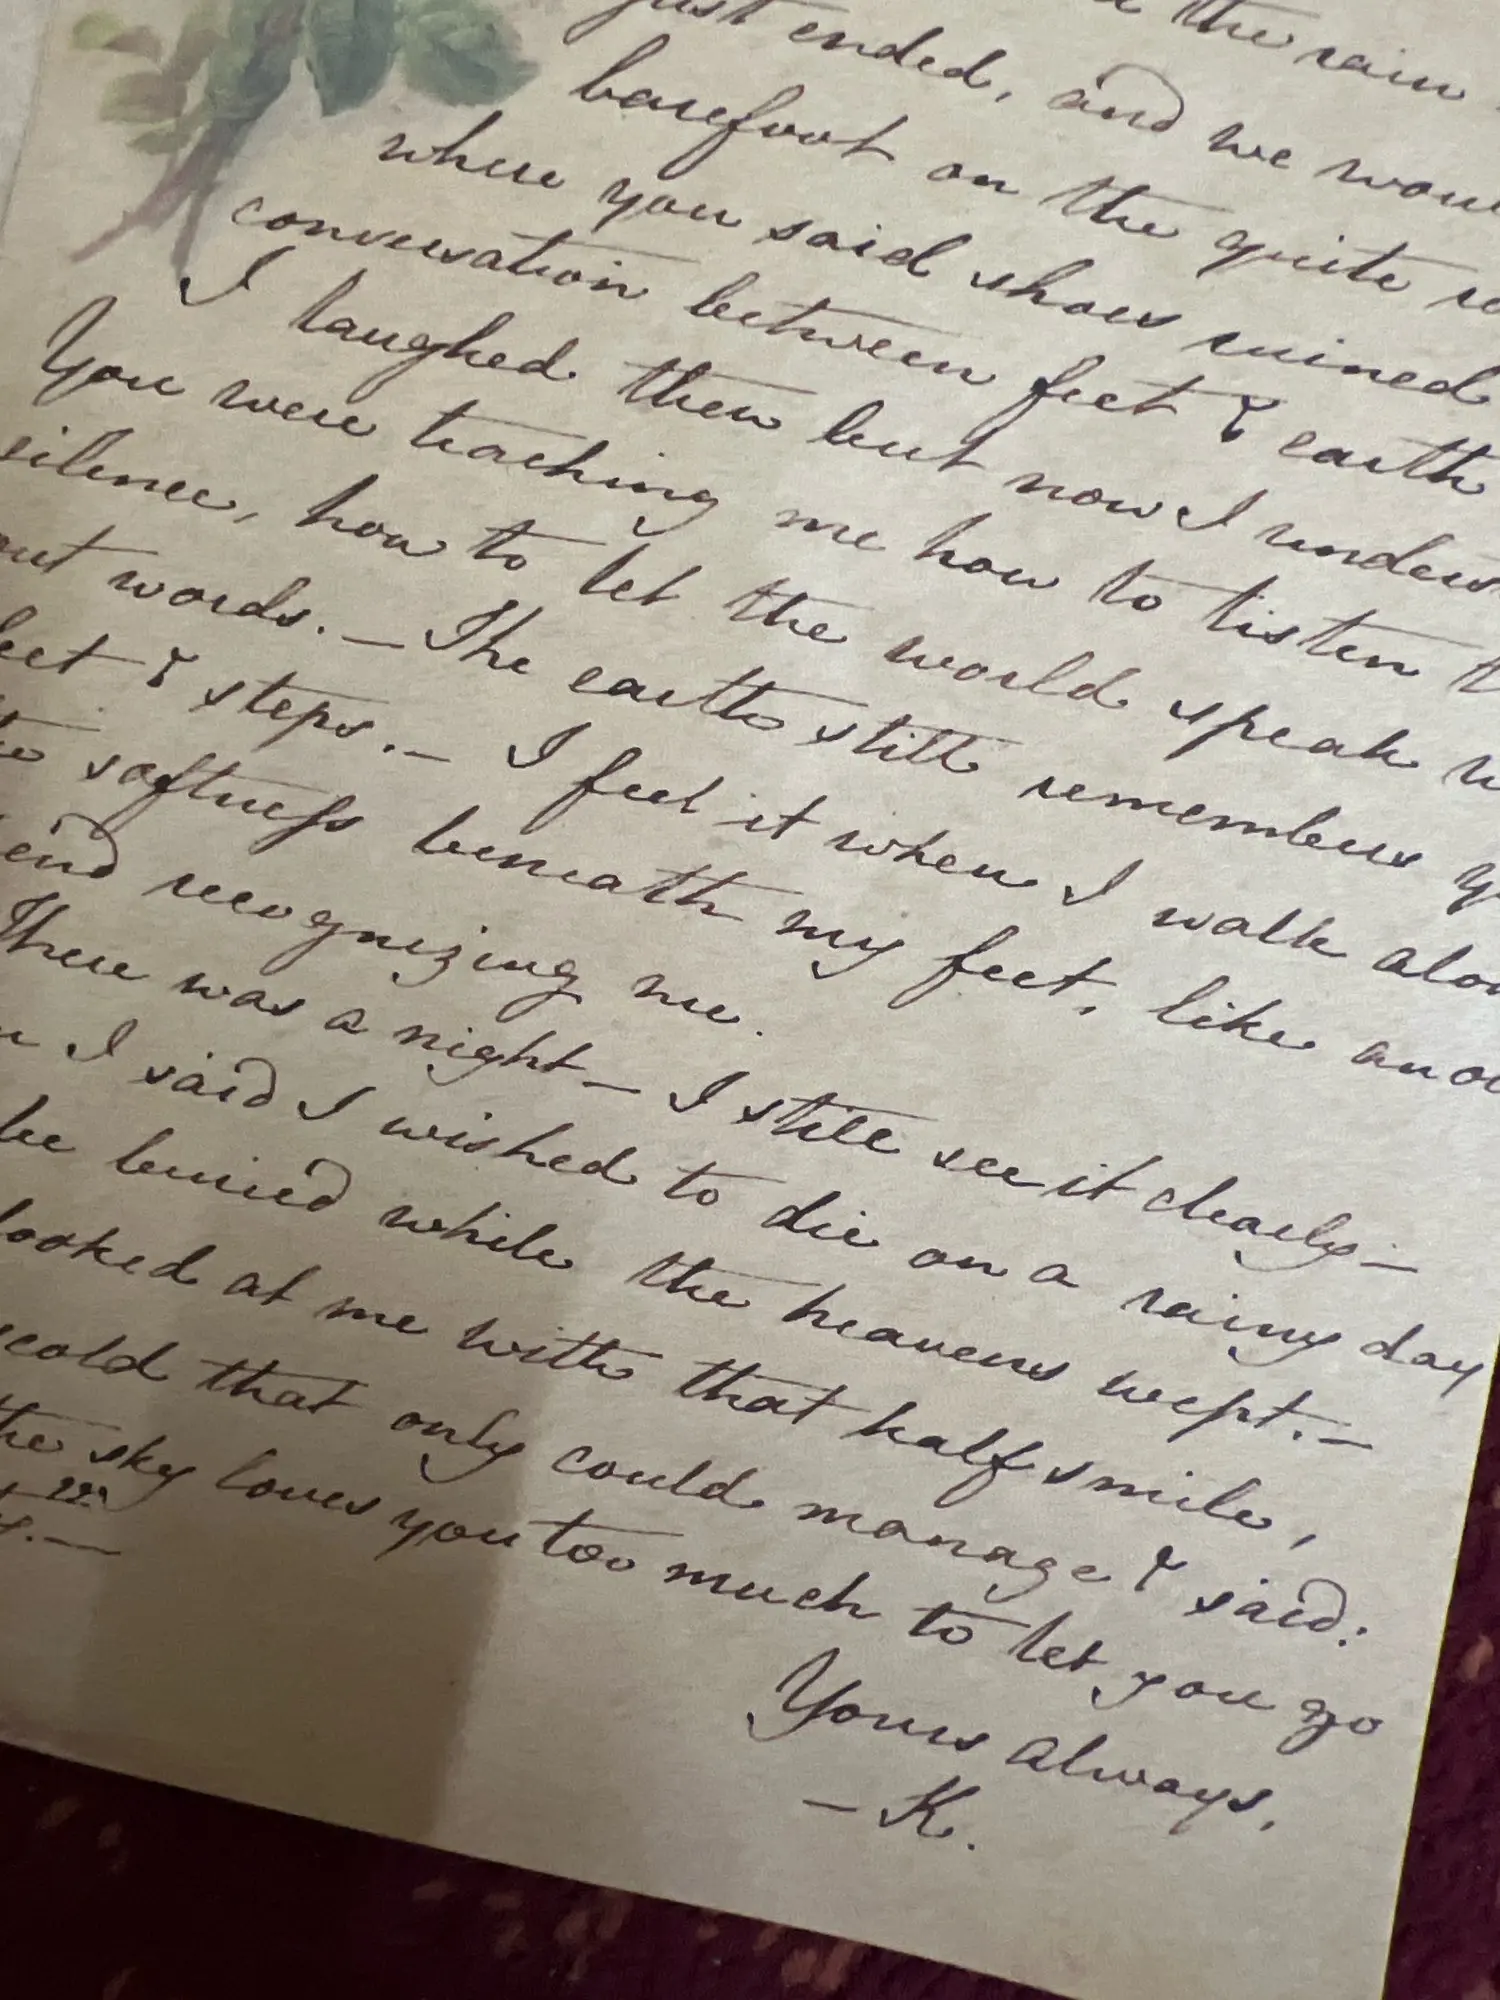 the rain
just ended, and we
barefoot on the quite
where you said shoes ruined
conversation between feet & earth
I laughed then but now I
You were teaching me how to listen
silence, how to let the world speak
words. — The earth still remembers
& steps. — I feel it when I walk
softness beneath my feet, like
recognizing me.
There was a night — I still see it clearly —
I said I wished to die on a rainy day
be buried while the heavens wept. —
looked at me with that half smile,
scold that only could manage & said:
the sky loves you too much to let you go
Yours always,
— K.